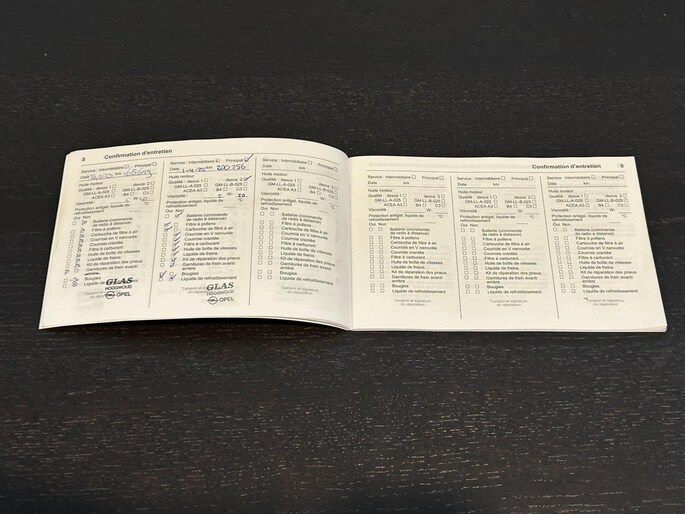 8 Confirmation d'entretien
Service : Intermédiaire Principal
Date km
Huile moteur
Qualité : dexos 1 dexos 2
GM-LL-A-025 GM-LL-B-025
ACEA A3 B4 C3
Viscosité : W-
Protection antigel, liquide de
refroidissement °C
Oui Non
Batterie (commande
de radio à distance)
Filtre à pollens
Cartouche de filtre à air
Courroie en V nervurée
Courroie crantée
Filtre à carburant
Huile de boîte de vitesses
Liquide de freins
Kit de réparation des pneus
Garnitures de frein avant/
arrière
Bougies
Liquide de
GLAS
HOOGWOUD
OPEL
Service : Intermédiaire Principal
Date 1-4-25 km 200-756
Huile moteur
Qualité : dexos 1 dexos 2
GM-LL-A-025 GM-LL-B-025
ACEA A3 B4 C3
Viscosité : 5 W- 30
Protection antigel, liquide de
refroidissement °C
Oui Non
Batterie (commande
de radio à distance)
Filtre à pollens
Cartouche de filtre à air
Courroie en V nervurée
Courroie crantée
Filtre à carburant
Huile de boîte de vitesses
Liquide de freins
Kit de réparation des pneus
Garnitures de frein avant/
arrière
Bougies
Liquide de refroidissement
Tampon et signature
du réparateur
GLAS
HOOGWOUD
OPEL
Service : Intermédiaire Principal
Date km
Huile moteur
Qualité : dexos 1 dexos 2
GM-LL-A-025 GM-LL-B-025
ACEA A3 B4 C3
Viscosité : W-
Protection antigel, liquide de
refroidissement °C
Oui Non
Batterie (commande
de radio à distance)
Filtre à pollens
Cartouche de filtre à air
Courroie en V nervurée
Courroie crantée
Filtre à carburant
Huile de boîte de vitesses
Liquide de freins
Kit de réparation des pneus
Garnitures de frein avant/
arrière
Bougies
Liquide de refroidissement
Tampon et signature
du réparateur
Confirmation d'entretien 9
Service : Intermédiaire Principal
Date km
Huile moteur
Qualité : dexos 1 dexos 2
GM-LL-A-025 GM-LL-B-025
ACEA A3 B4 C3
Viscosité : W-
Protection antigel, liquide de
refroidissement °C
Oui Non
Batterie (commande
de radio à distance)
Filtre à pollens
Cartouche de filtre à air
Courroie en V nervurée
Courroie crantée
Filtre à carburant
Huile de boîte de vitesses
Liquide de freins
Kit de réparation des pneus
Garnitures de frein avant/
arrière
Bougies
Liquide de refroidissement
Tampon et signature
du réparateur
Service : Intermédiaire Principal
Date km
Huile moteur
Qualité : dexos 1 dexos 2
GM-LL-A-025 GM-LL-B-025
ACEA A3 B4 C3
Viscosité : W-
Protection antigel, liquide de
refroidissement °C
Oui Non
Batterie (commande
de radio à distance)
Filtre à pollens
Cartouche de filtre à air
Courroie en V nervurée
Courroie crantée
Filtre à carburant
Huile de boîte de vitesses
Liquide de freins
Kit de réparation des pneus
Garnitures de frein avant/
arrière
Bougies
Liquide de refroidissement
Tampon et signature
du réparateur
Service : Intermédiaire Principal
Date km
Huile moteur
Qualité : dexos 1 dexos 2
GM-LL-A-025 GM-LL-B-025
ACEA A3 B4 C3
Viscosité : W-
Protection antigel, liquide de
refroidissement °C
Oui Non
Batterie (commande
de radio à distance)
Filtre à pollens
Cartouche de filtre à air
Courroie en V nervurée
Courroie crantée
Filtre à carburant
Huile de boîte de vitesses
Liquide de freins
Kit de réparation des pneus
Garnitures de frein avant/
arrière
Bougies
Liquide de refroidissement
Tampon et signature
du réparateur